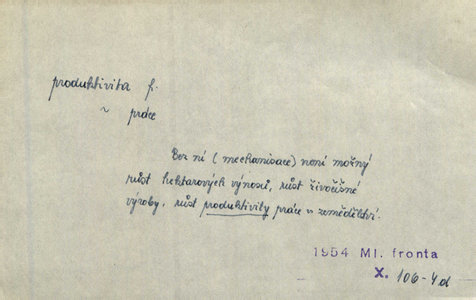 produktivita f.
~ práce
Bez ní (mechanisace) není možný
růst hektarových výnosů, růst živočišné
výroby, růst produktivity práce v zemědělství.
1954 Ml. fronta
X. 106-4d